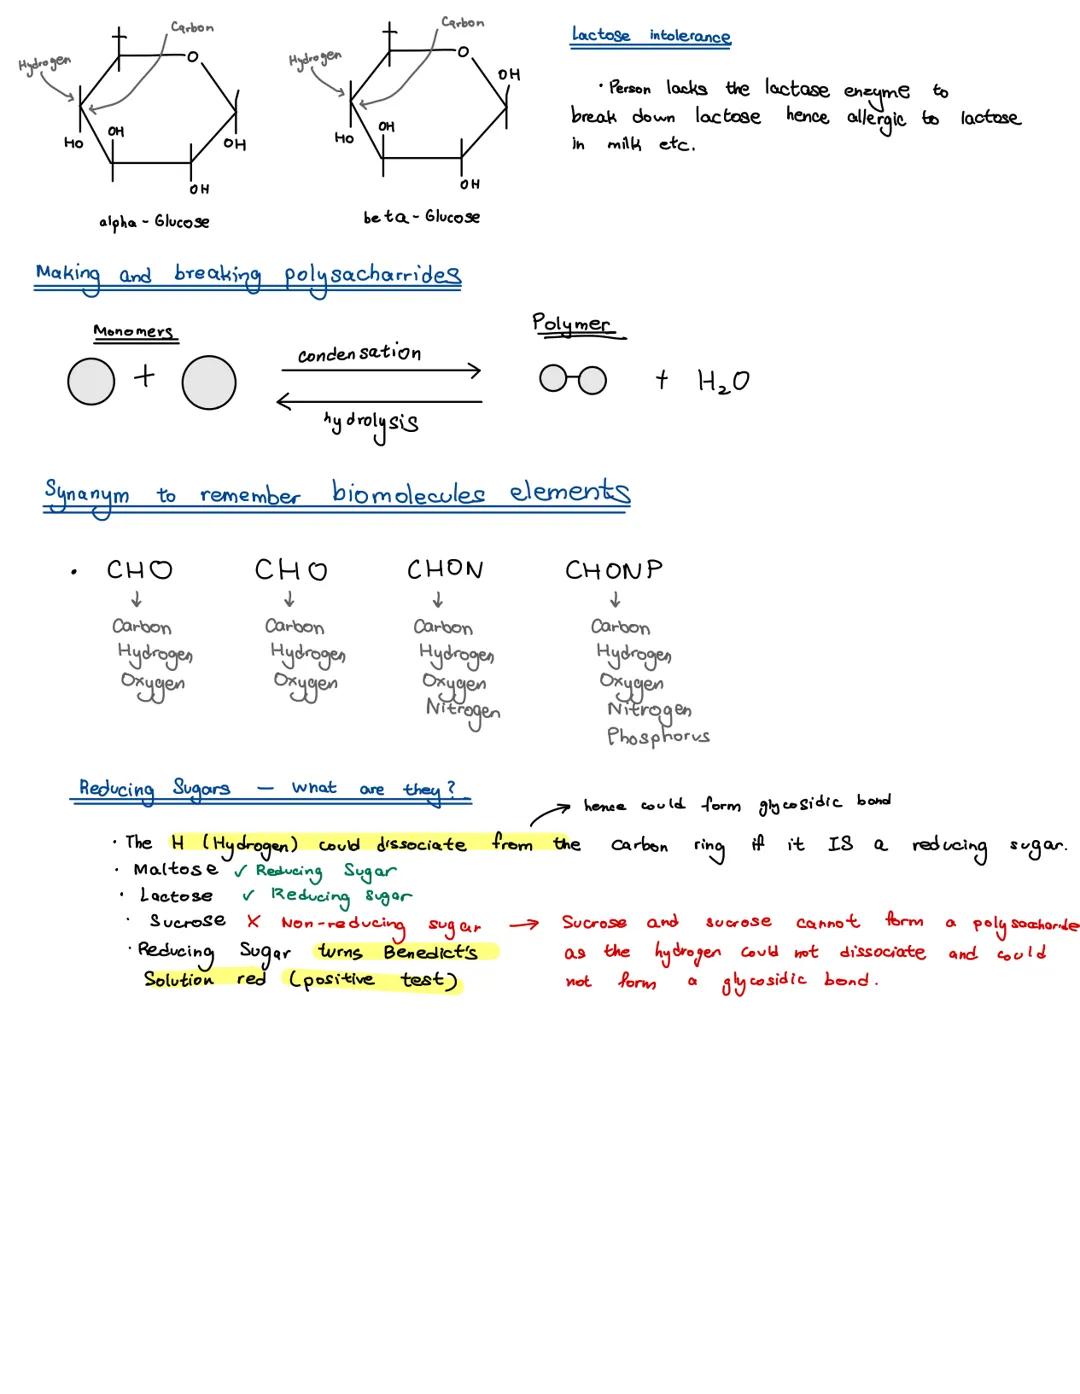 Carbon
Hydrogen
O
HO
OH
OH
OH
alpha - Glucose
Carbon
Hydrogen
O
OH
HO
OH
OH
beta - Glucose
Lactose intolerance
• Person lacks the lactase enzyme to
break down lactose hence allergic to lactose
in milk etc.
Making and breaking polysacharrides
Monomers
+
condensation
hydrolysis
Polymer
+ H₂O
Synanym to remember biomolecules elements
• CHO CHO CHON CHONP
↓ ↓ ↓ ↓
Carbon Carbon Carbon Carbon
Hydrogen Hydrogen Hydrogen Hydrogen
Oxygen Oxygen Oxygen Oxygen
Nitrogen Nitrogen
Phosphorus
Reducing Sugars - What are they?
→ hence could form glycosidic bond
• The H (Hydrogen) could dissociate from the carbon ring if it IS a reducing sugar.
• Maltose ✓ Reducing Sugar
• Lactose ✓ Reducing sugar
• Sucrose X Non-reducing sugar → Sucrose and sucrose cannot form a polysaccharide
as the hydrogen could not dissociate and could
not form a glycosidic bond.
• Reducing Sugar turns Benedict's
Solution red (positive test)